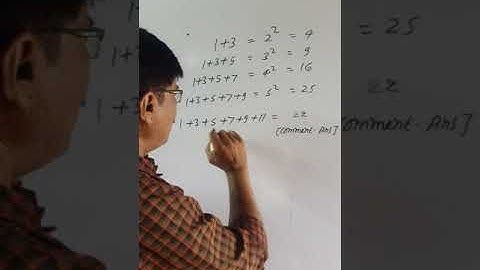 1+3 = 2² = 4
1+3+5 = 3² = 9
1+3+5+7 = 4² = 16
1+3+5+7+9 = 5² = 25
1+3+5+7+9+11 = ??
[Comment. Ans]
= 25
1 + 3
??
Comment. Ans]